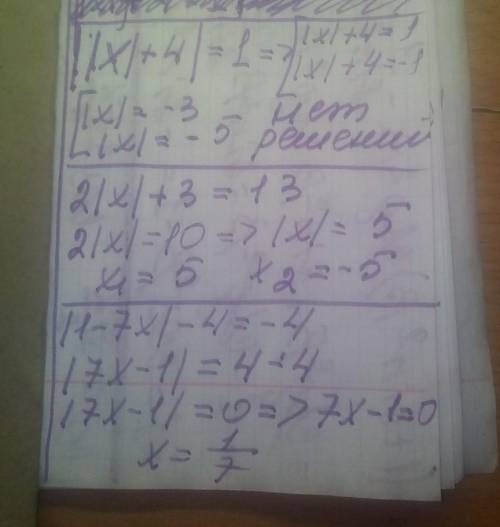 ||x|+4|=1=>[|x|+4=1
|x|+4=-1
[|x|=-3 нет
|x|=-5 решений
2|x|+3=13
2|x|=10=>|x|=5
x1=5 x2=-5
|1-7x|-4=-4
|7x-1|=4-4
|7x-1|=0=>7x-1=0
x=1/7